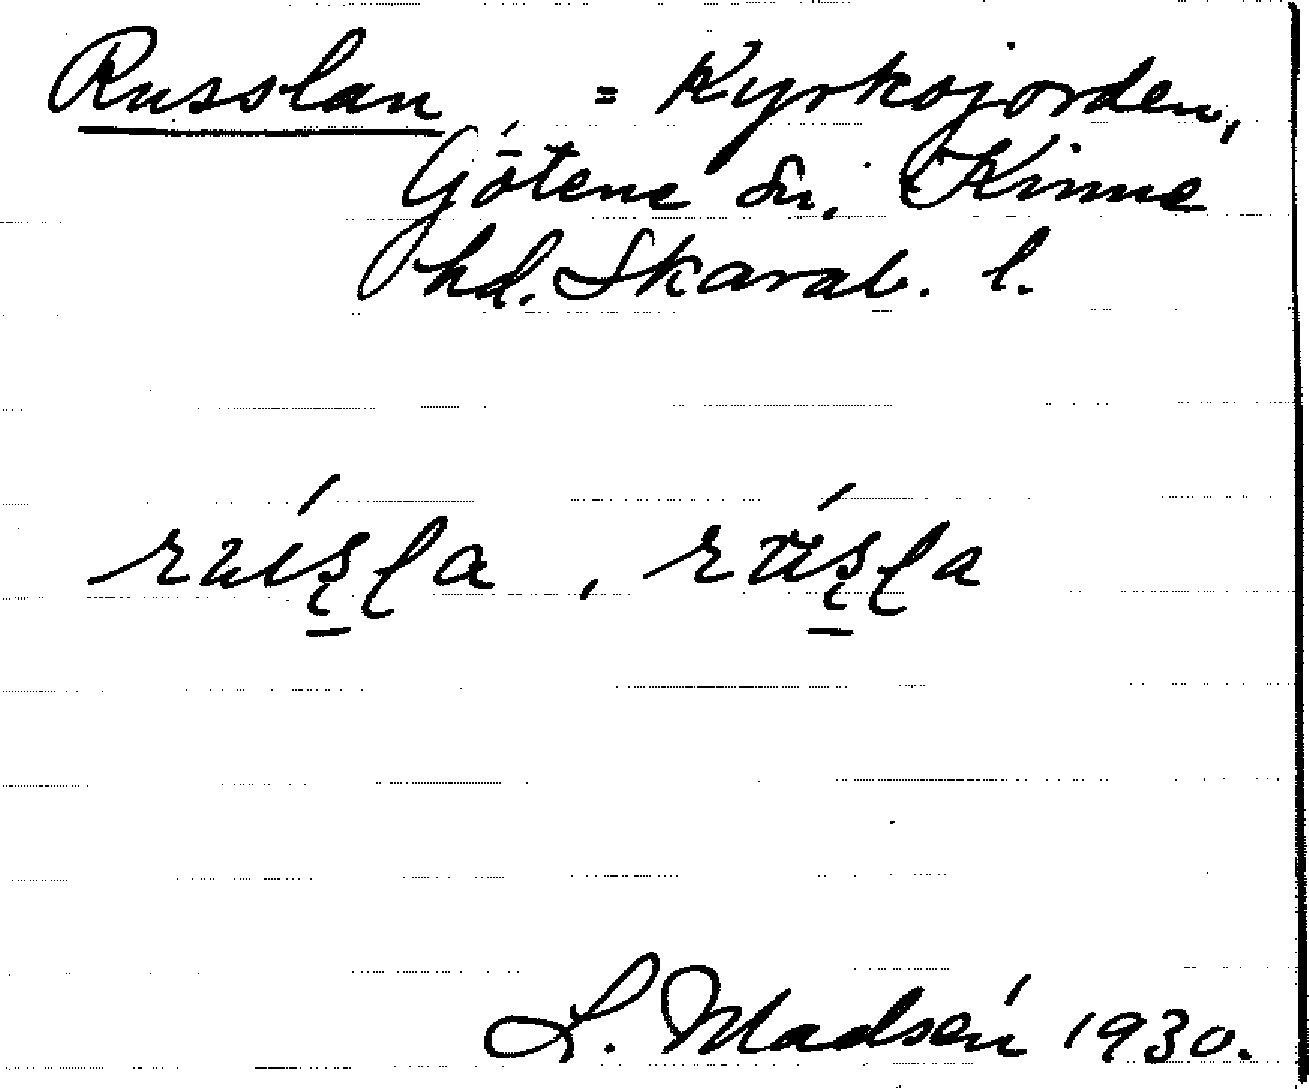 Russlan = Kyrkojorden,
Götene sn. Kinne
hd. Skarab. l.
L. Madsén 1930.